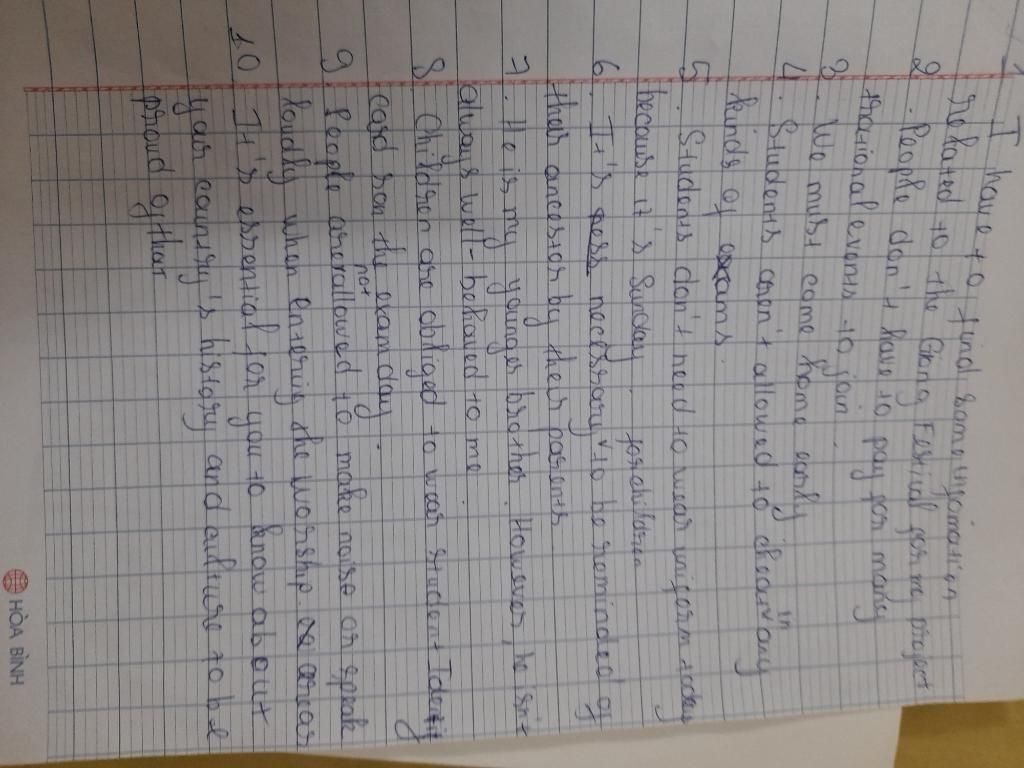 1 I have to find some information
related to the Gióng Festival for my project
2 . People don't have to pay for many
tradional events to join
3 . We must come home early
4 . Students aren't allowed to cheat in any
kinds of exams.
5 . Students don't need to wear uniform today
because it's Sunday
6 . It's necessary for children to be reminded of
their ancestor by their parents
7 . He is my younger brother. However, he isn't
always well-behaved to me.
8 . Children are obliged to wear student Identify
card son the exam day.
9 . People are not allowed to make noise or speak
loudly when entering the worship areas
10 It's essential for you to know about
your country's history and culture to be
proud of that
HÒA BÌNH